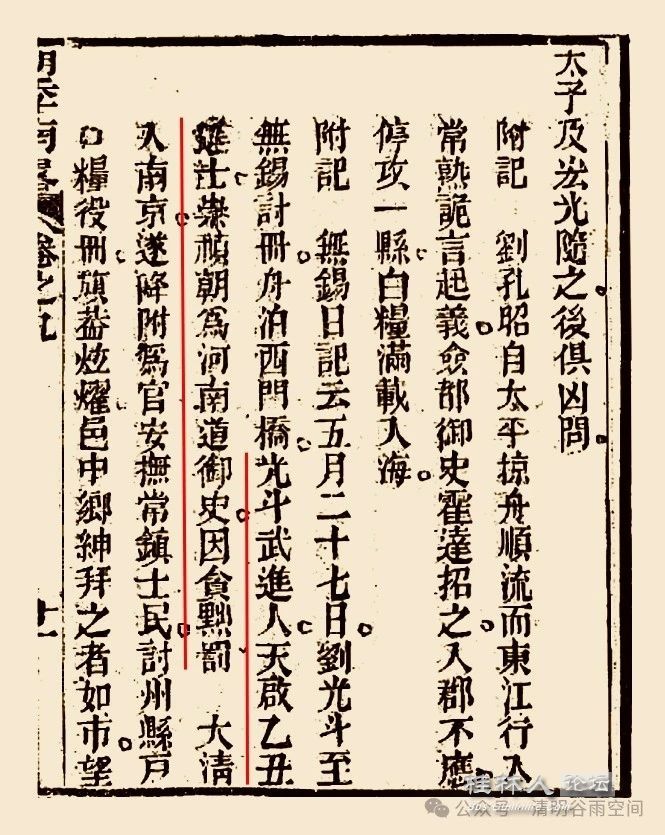 太子及宏光隨之後俱凶問
附記　劉孔昭自太平掠舟順流而東江行入
常熟詭言起義僉都御史霍達拓之入郡不應
停攻一縣白糧滿載入海
附記　無錫日記云五月二十七日劉光斗至
無錫討冊舟泊西門橋光斗武進人天啟乙丑
進士崇禎朝為河南道御史因貪黜罰　大清
入南京遂降附為官安撫常鎮士民討州縣戶
口糧役冊旗葢炫燿邑中鄉紳拜之者如市望
明季南畧　卷之九
十一
桂林人论坛
公众号·清明谷雨空间